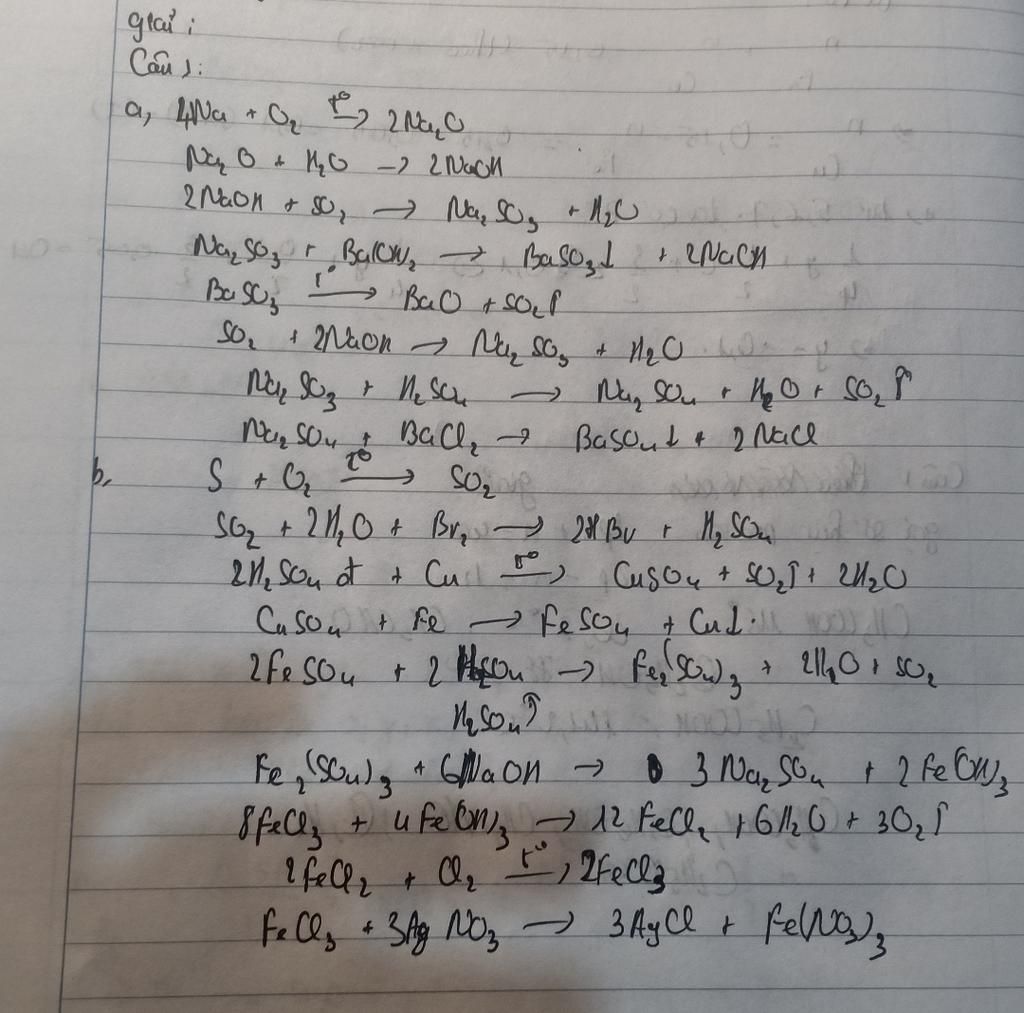 Giải:
Câu 1:
a, 4Na + O₂ →(t°) 2Na₂O
Na₂O + H₂O → 2NaOH
2NaOH + SO₂ → Na₂SO₃ + H₂O
Na₂SO₃ + Ba(OH)₂ → BaSO₃↓ + 2NaOH
BaSO₃ →(t°) BaO + SO₂↑
SO₂ + 2NaOH → Na₂SO₃ + H₂O
Na₂SO₃ + H₂SO₄ → Na₂SO₄ + H₂O + SO₂↑
Na₂SO₄ + BaCl₂ → BaSO₄↓ + 2NaCl
b, S + O₂ →(t°) SO₂
SO₂ + 2H₂O + Br₂ → 2HBr + H₂SO₄
2H₂SO₄ đ + Cu →(t°) CuSO₄ + SO₂↑ + 2H₂O
CuSO₄ + Fe → FeSO₄ + Cu↓.
2FeSO₄ + 2 H₂SO₄ → Fe₂(SO₄)₃ + 2H₂O + SO₂
H₂SO₄↑
Fe₂(SO₄)₃ + 6NaOH → 3Na₂SO₄ + 2Fe(OH)₃
8FeCl₃ + 4Fe(OH)₃ → 12FeCl₂ + 6H₂O + 3O₂↑
2FeCl₂ + Cl₂ →(t°) 2FeCl₃
FeCl₃ + 3AgNO₃ → 3AgCl + Fe(NO₃)₃